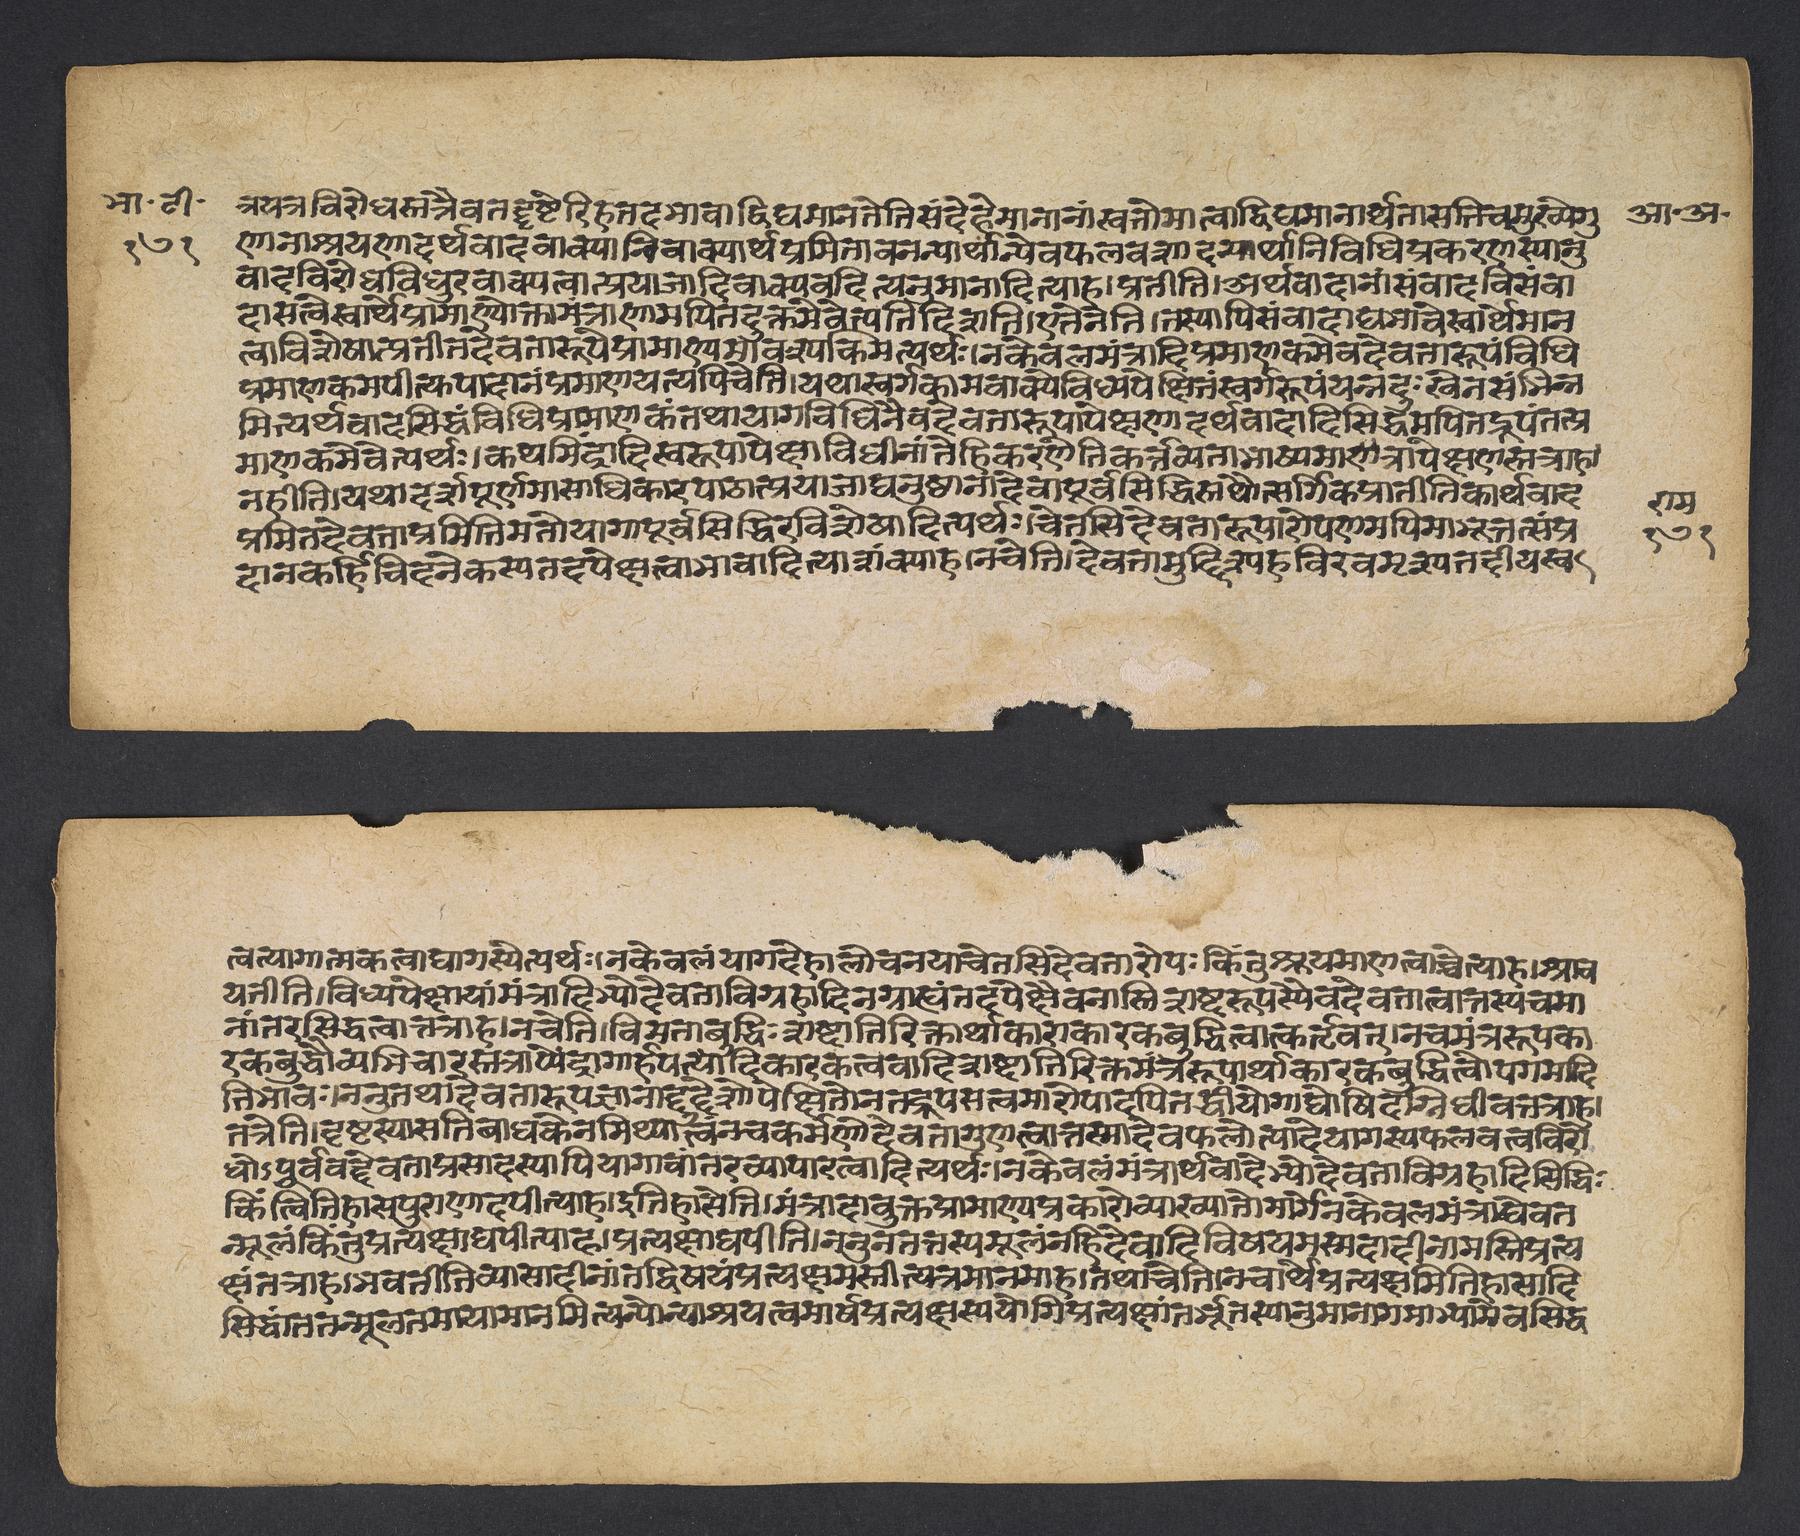 भा॰ टी॰
१७१
आ॰ अ॰
त्रयत्रविरोधस्तत्रैवतद्दृष्टेरिहतदभावाद्विद्यमानतेतिसंदेहेमानानांस्वतोमात्वाद्विद्यमानार्थतासतिचमुख्येगु
णानाश्रयणादर्थवादवाक्यानिवाक्यार्थप्रमितावनन्यार्थान्येवफलवशादन्यार्थानिविधिप्रकरणस्यानु
वादविरोधविधुरवाक्यत्वात्प्रयाजादिवाक्यवदित्यनुमानादित्याह।प्रतीति।अर्थवादानांसंवादविसंवा
दासत्वेस्वार्थेप्रामाण्योक्तामंत्राणामपितदुक्तमेवेत्यतिदिशति।एतेनेति।तस्यापिसंवादाद्यभावेस्वार्थेमान
त्वाविशेषात्प्रतीतदेवतारूपेप्रामाण्यमावश्यकमित्यर्थः।नकेवलमंत्रादिप्रमाणकमेवदेवतारूपंविधि
प्रमाणकमपीत्युपादानंप्रमाणयत्यपिचेति।यथास्वर्गकामवाक्येविध्यपेक्षितंस्वर्गरूपंयन्नदुःखेनसंभिन्न
मित्यर्थवादसिद्धंविधिप्रमाणकंतथायागविधिनैवदेवतारूपापेक्षणादर्थवादादिसिद्धमपितद्रूपंतत्प्र
माणकमेवेत्यर्थः।कथमिंद्रादिस्वरूपापेक्षाविधीनां
नहीति।यथादर्शपूर्णमासाधिकारपाठात्प्रयाजाद्यनुष्ठानादेवापूर्वसिद्धिस्तथौत्सर्गिकप्रातीतिकार्थवाद
प्रमितदेवताप्रमितिमतोयागापूर्वसिद्धिरविशेषादित्यर्थः।चेतसिदेवतारूपारोपणमपिमाभूत्तत्संप्र
दानकर्हिचिदनेकस्यतदपेक्षत्वाभावादित्याशंक्याह।नचेति।देवतामुद्दिश्यहविरवमृश्यतदीयस्व
राम
१७१
त्वत्यागात्मकत्वाद्यागस्येत्यर्थः।नकेवलंयागदेहालोचनयाचेतसिदेवतारोपःकिंतुश्रूयमाणत्वाच्चेत्याह।श्राव
यतीति।विध्यपेक्षायांमंत्रादिभ्योदेवताविग्रहादिनग्राह्यंतदपेक्षैवनास्तिशब्दरूपस्यैवदेवतात्वात्तस्यचमा
नांतरसिद्धत्वात्तत्राह।नचेति।विमताबुद्धिःशब्दातिरिक्तार्थाकाराकारकबुद्धित्वात्कर्तृवत्।नचमंत्ररूपका
रकबुद्धौव्यभिचारस्तत्राप्यैंद्रागार्हपत्यादिकारकत्ववादिशब्दातिरिक्तमंत्ररूपार्थाकारकबुद्धित्वोपगमादि
तिभावः।ननुतथादेवतारूपज्ञानाद्युद्देशोपेक्षितोनतद्रूपसत्वमारोपादपितद्धीयोगाद्योषिदग्निधीवत्तत्राह।
तत्रेति।दृष्टस्यासतिबाधकेनमिथ्यात्वंनचकर्मणोदेवतागुणत्वात्तस्मादेवफलोत्पादेयागस्यफलवत्त्वविरो
धोऽपूर्ववद्देवताप्रसादस्यापियागावांतरव्यापारत्वादित्यर्थः।नकेवलंमंत्रार्थवादेभ्योदेवताविग्रहादिसिद्धिः
किंत्वितिहासपुराणादपीत्याह।इतिहासेति।मंत्रादावुक्तप्रामाण्यप्रकारोव्याख्यातोमार्गोनकेवलमंत्राद्येवत
न्मूलंकिंतुप्रत्यक्षाद्यपीत्याह।प्रत्यक्षाद्यपीति।ननुनतत्तस्यमूलंनहिदेवादिविषयमस्मदादीनामस्तिप्रत्य
क्षंतत्राह।भवतीतिव्यासादीनांतद्विषयंप्रत्यक्षमस्तीत्यत्रमानमाह।तथाचेति।नचार्थप्रत्यक्षमितिहासादि
सिद्धांततन्मूलतमायामानमित्यन्योन्याश्रयत्वमार्षप्रत्यक्षस्ययोगिप्रत्यक्षांतर्भूतस्यानुमानागमाभ्यामेवसिद्ध